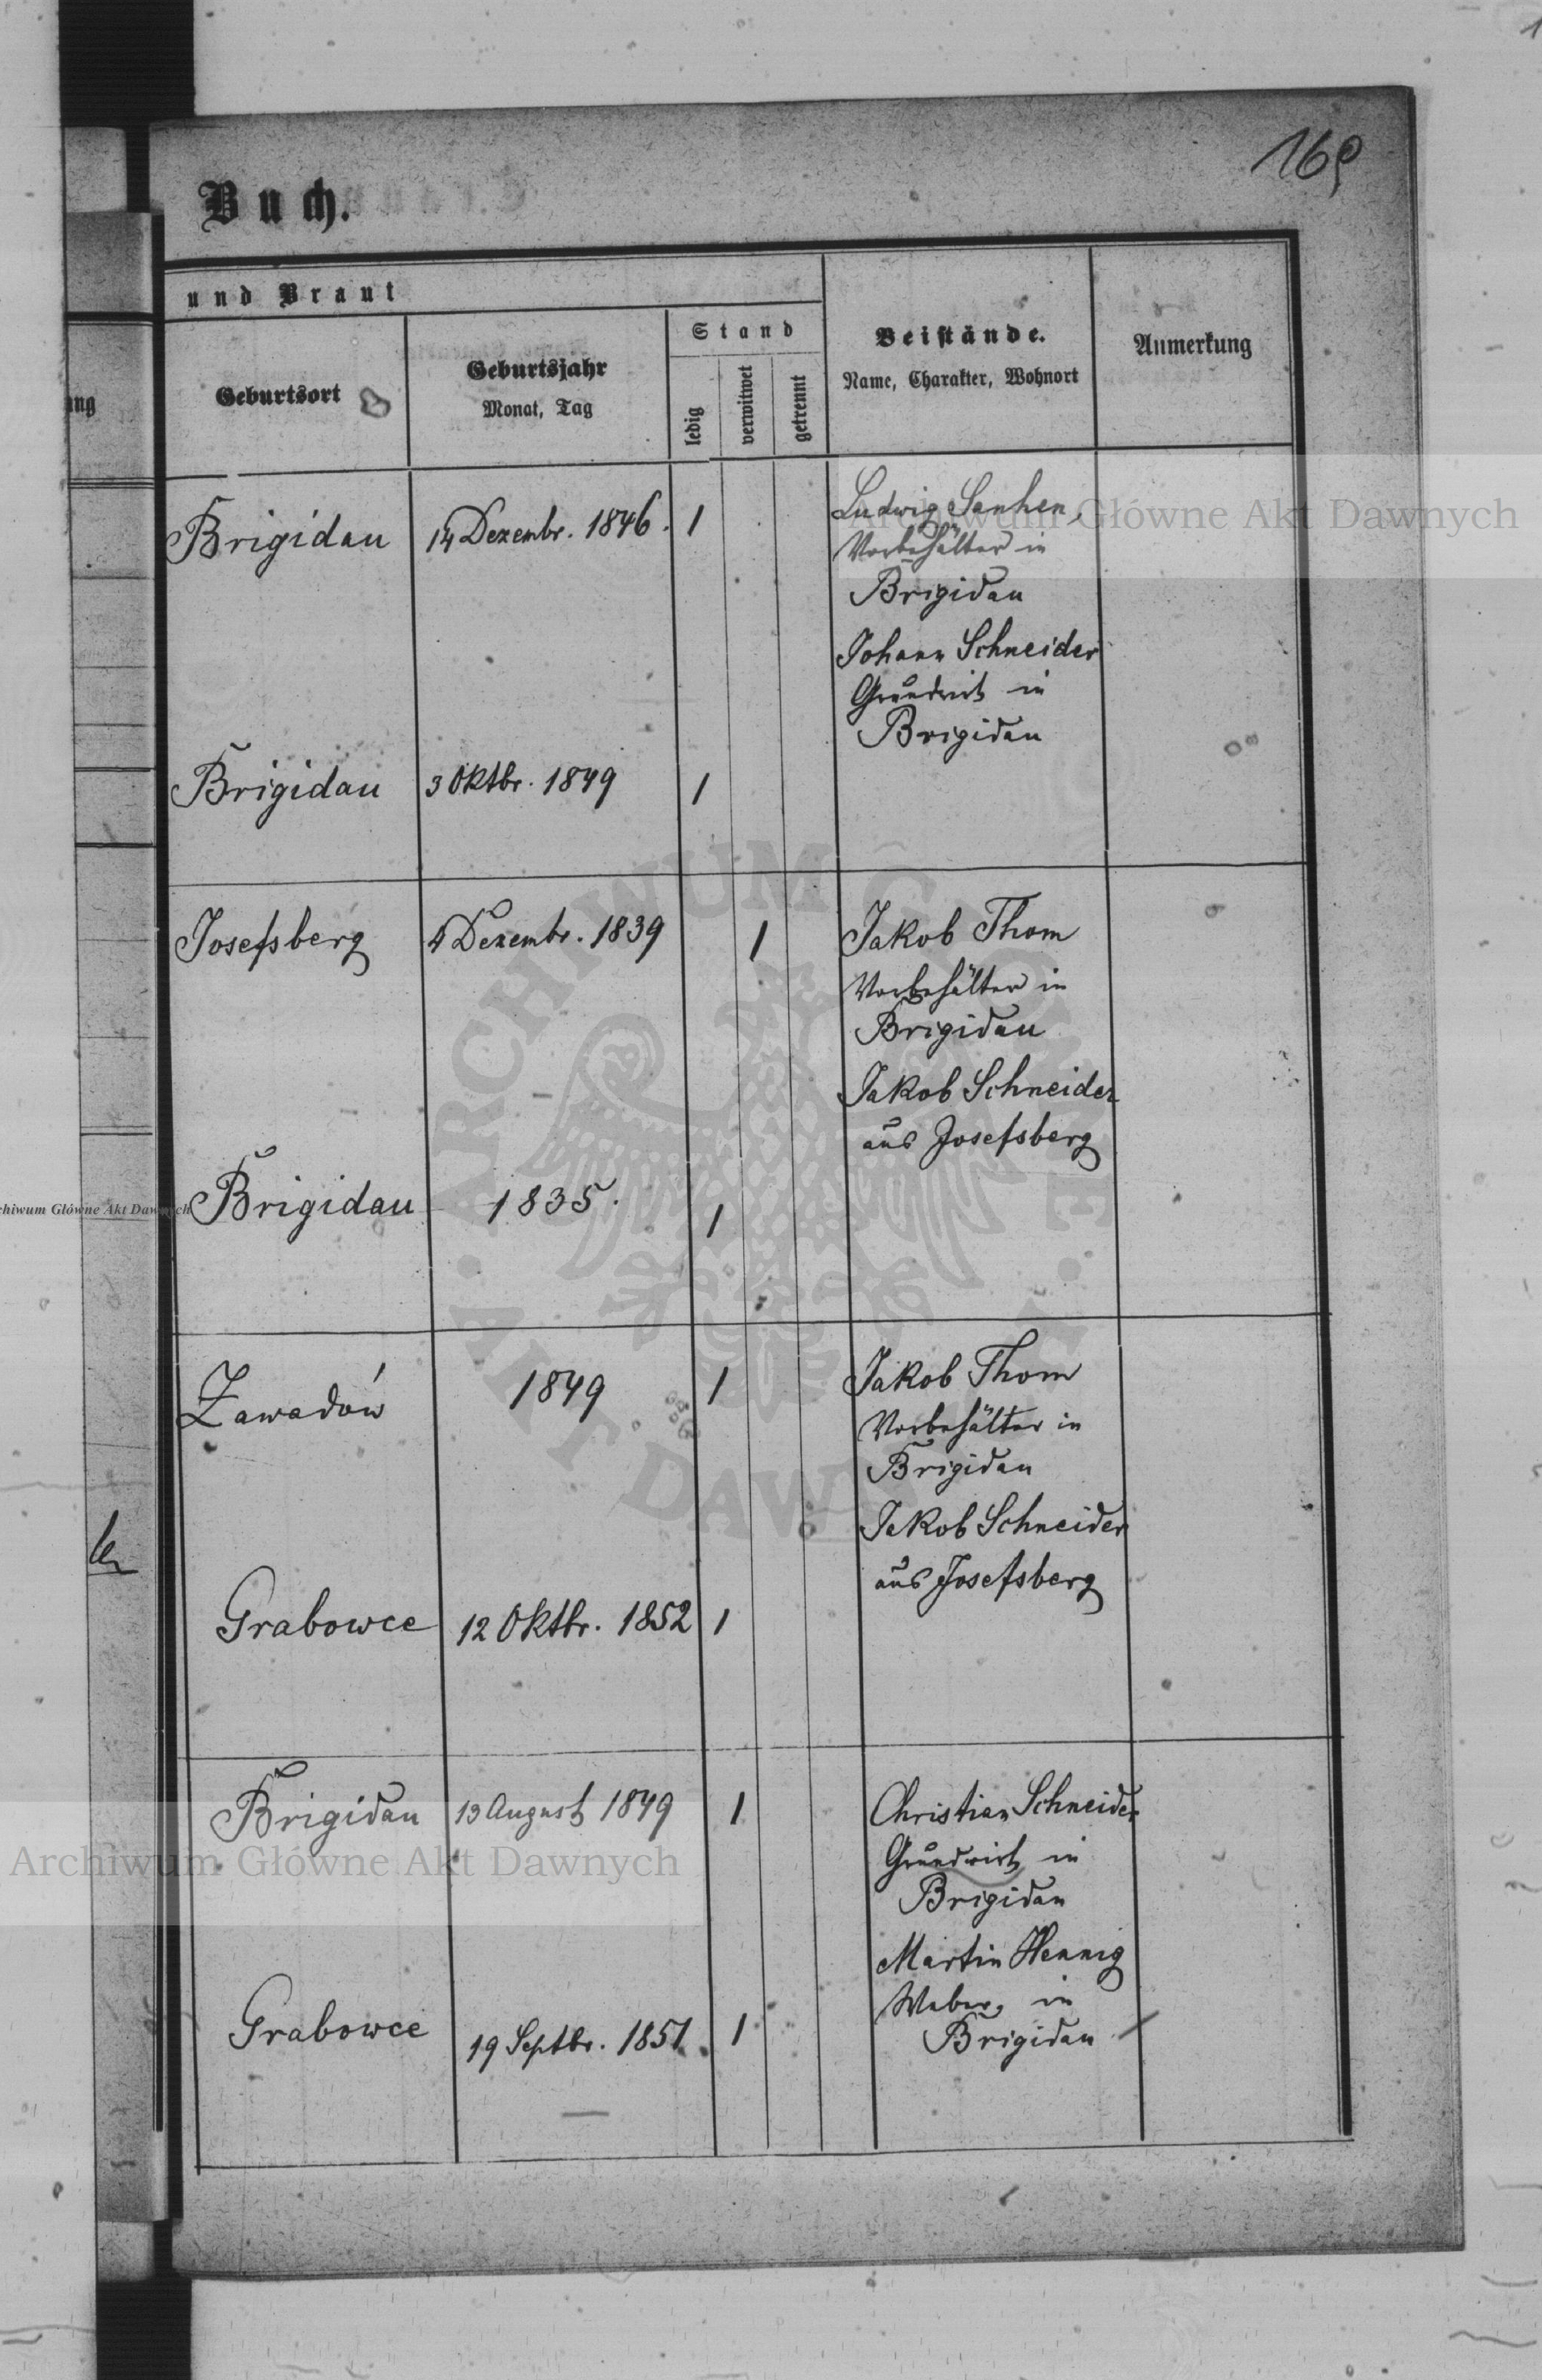 169
Buch.
und Braut
Geburtsort
Geburtsjahr
Monat, Tag
Stand
ledig
verwitwet
getrennt
Beistände.
Name, Charakter, Wohnort
Anmerkung
ung
Brigidau 14 Dezembr. 1846. 1
Ludwig
Vorbehälter in
Brigidau
Johann Schneider
Grundwirt in
Brigidau
Brigidau 3 Oktbr. 1849 1
Josefsberg 4 Dezembr. 1839 1
Jakob Thom
Vorbehälter in
Brigidau
Jakob Schneider
aus Josefsberg
Brigidau 1835. 1
Zawadów 1849 1
Jakob Thom
Vorbehälter in
Brigidau
Jakob Schneider
aus Josefsberg
Grabowce 12 Oktbr. 1852 1
Brigidau 13 August 1849 1
Christian Schneider
Grundwirt in
Brigidau
Martin Hennig
Weber in
Brigidau
Grabowce 19 Septbr. 1851. 1
Archiwum Główne Akt Dawnych
chiwum Główne Akt Dawnych
Archiwum Główne Akt Dawnych
ARCHIWUM GŁÓWNE AKT DAWNYCH